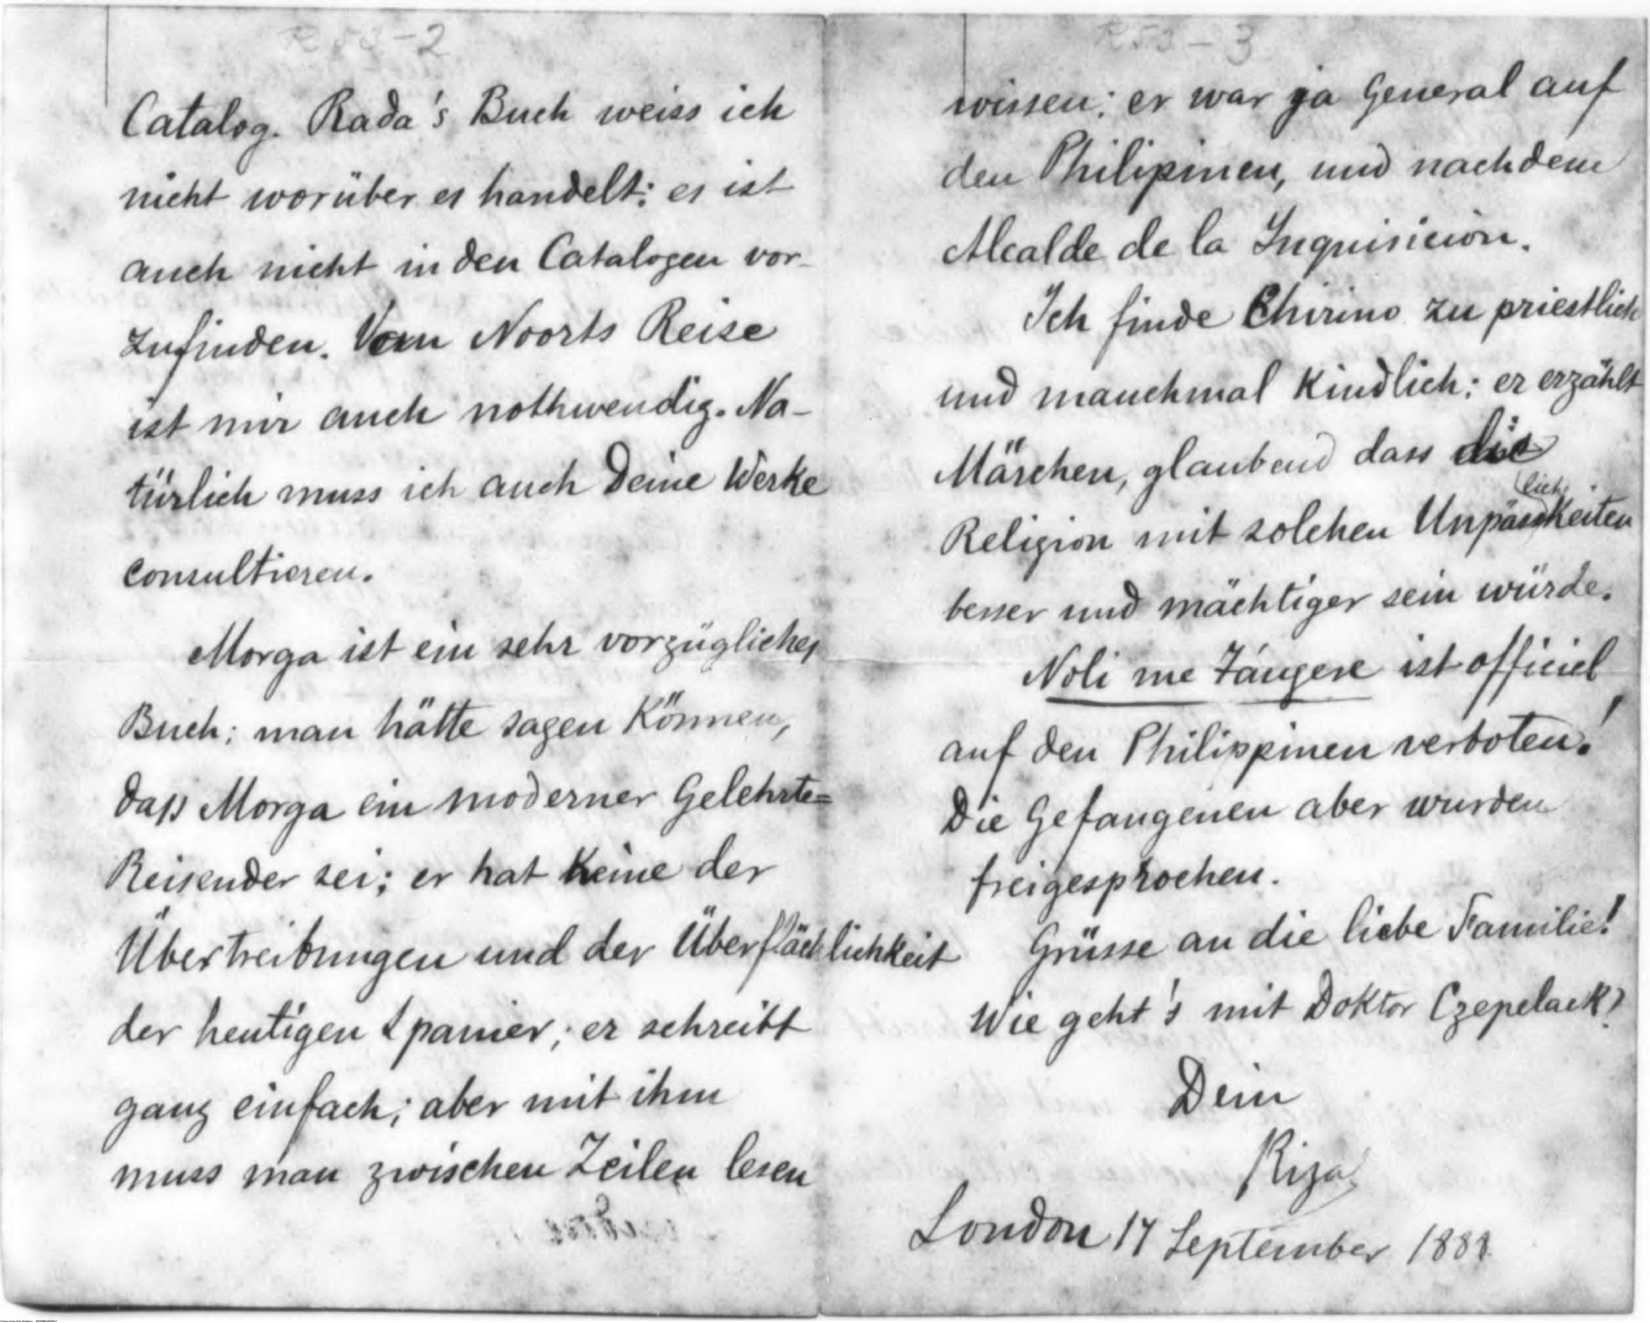 R53-2
Catalog. Rada's Buch weiss ich
nicht worüber es handelt: es ist
auch nicht in den Catalogen vor-
zufinden. Van Noorts Reise
ist mir auch nothwendig. Na-
türlich muss ich auch Deine Werke
consultieren.
Morga ist ein sehr vorzügliches
Buch: man hätte sagen Können,
daß Morga ein moderner Gelehrte=
Reisender sei; er hat Keine der
Übertreibungen und der Überflächlichkeit
der heutigen Spanier; er schreibt
ganz einfach; aber mit ihm
muss man zwischen Zeilen lesen
R53-3
wissen: er war ja General auf
den Philipinen, und nachdem
Alcalde de la Inquisicion.
Ich finde Chirino zu priestlich
und manchmal Kindlich: er erzählt
Märchen, glaubend dass die
Religion mit solchen UnpässlichKeiten
besser und mächtiger sein würde.
Noli me Tángere ist officiel
auf den Philippinen verboten!
Die Gefangenen aber wurden
freigesprochen.
Grüsse an die liebe Familie!
Wie geht's mit Doktor Czepelack?
Dein
Rizal
London 17 September 1888